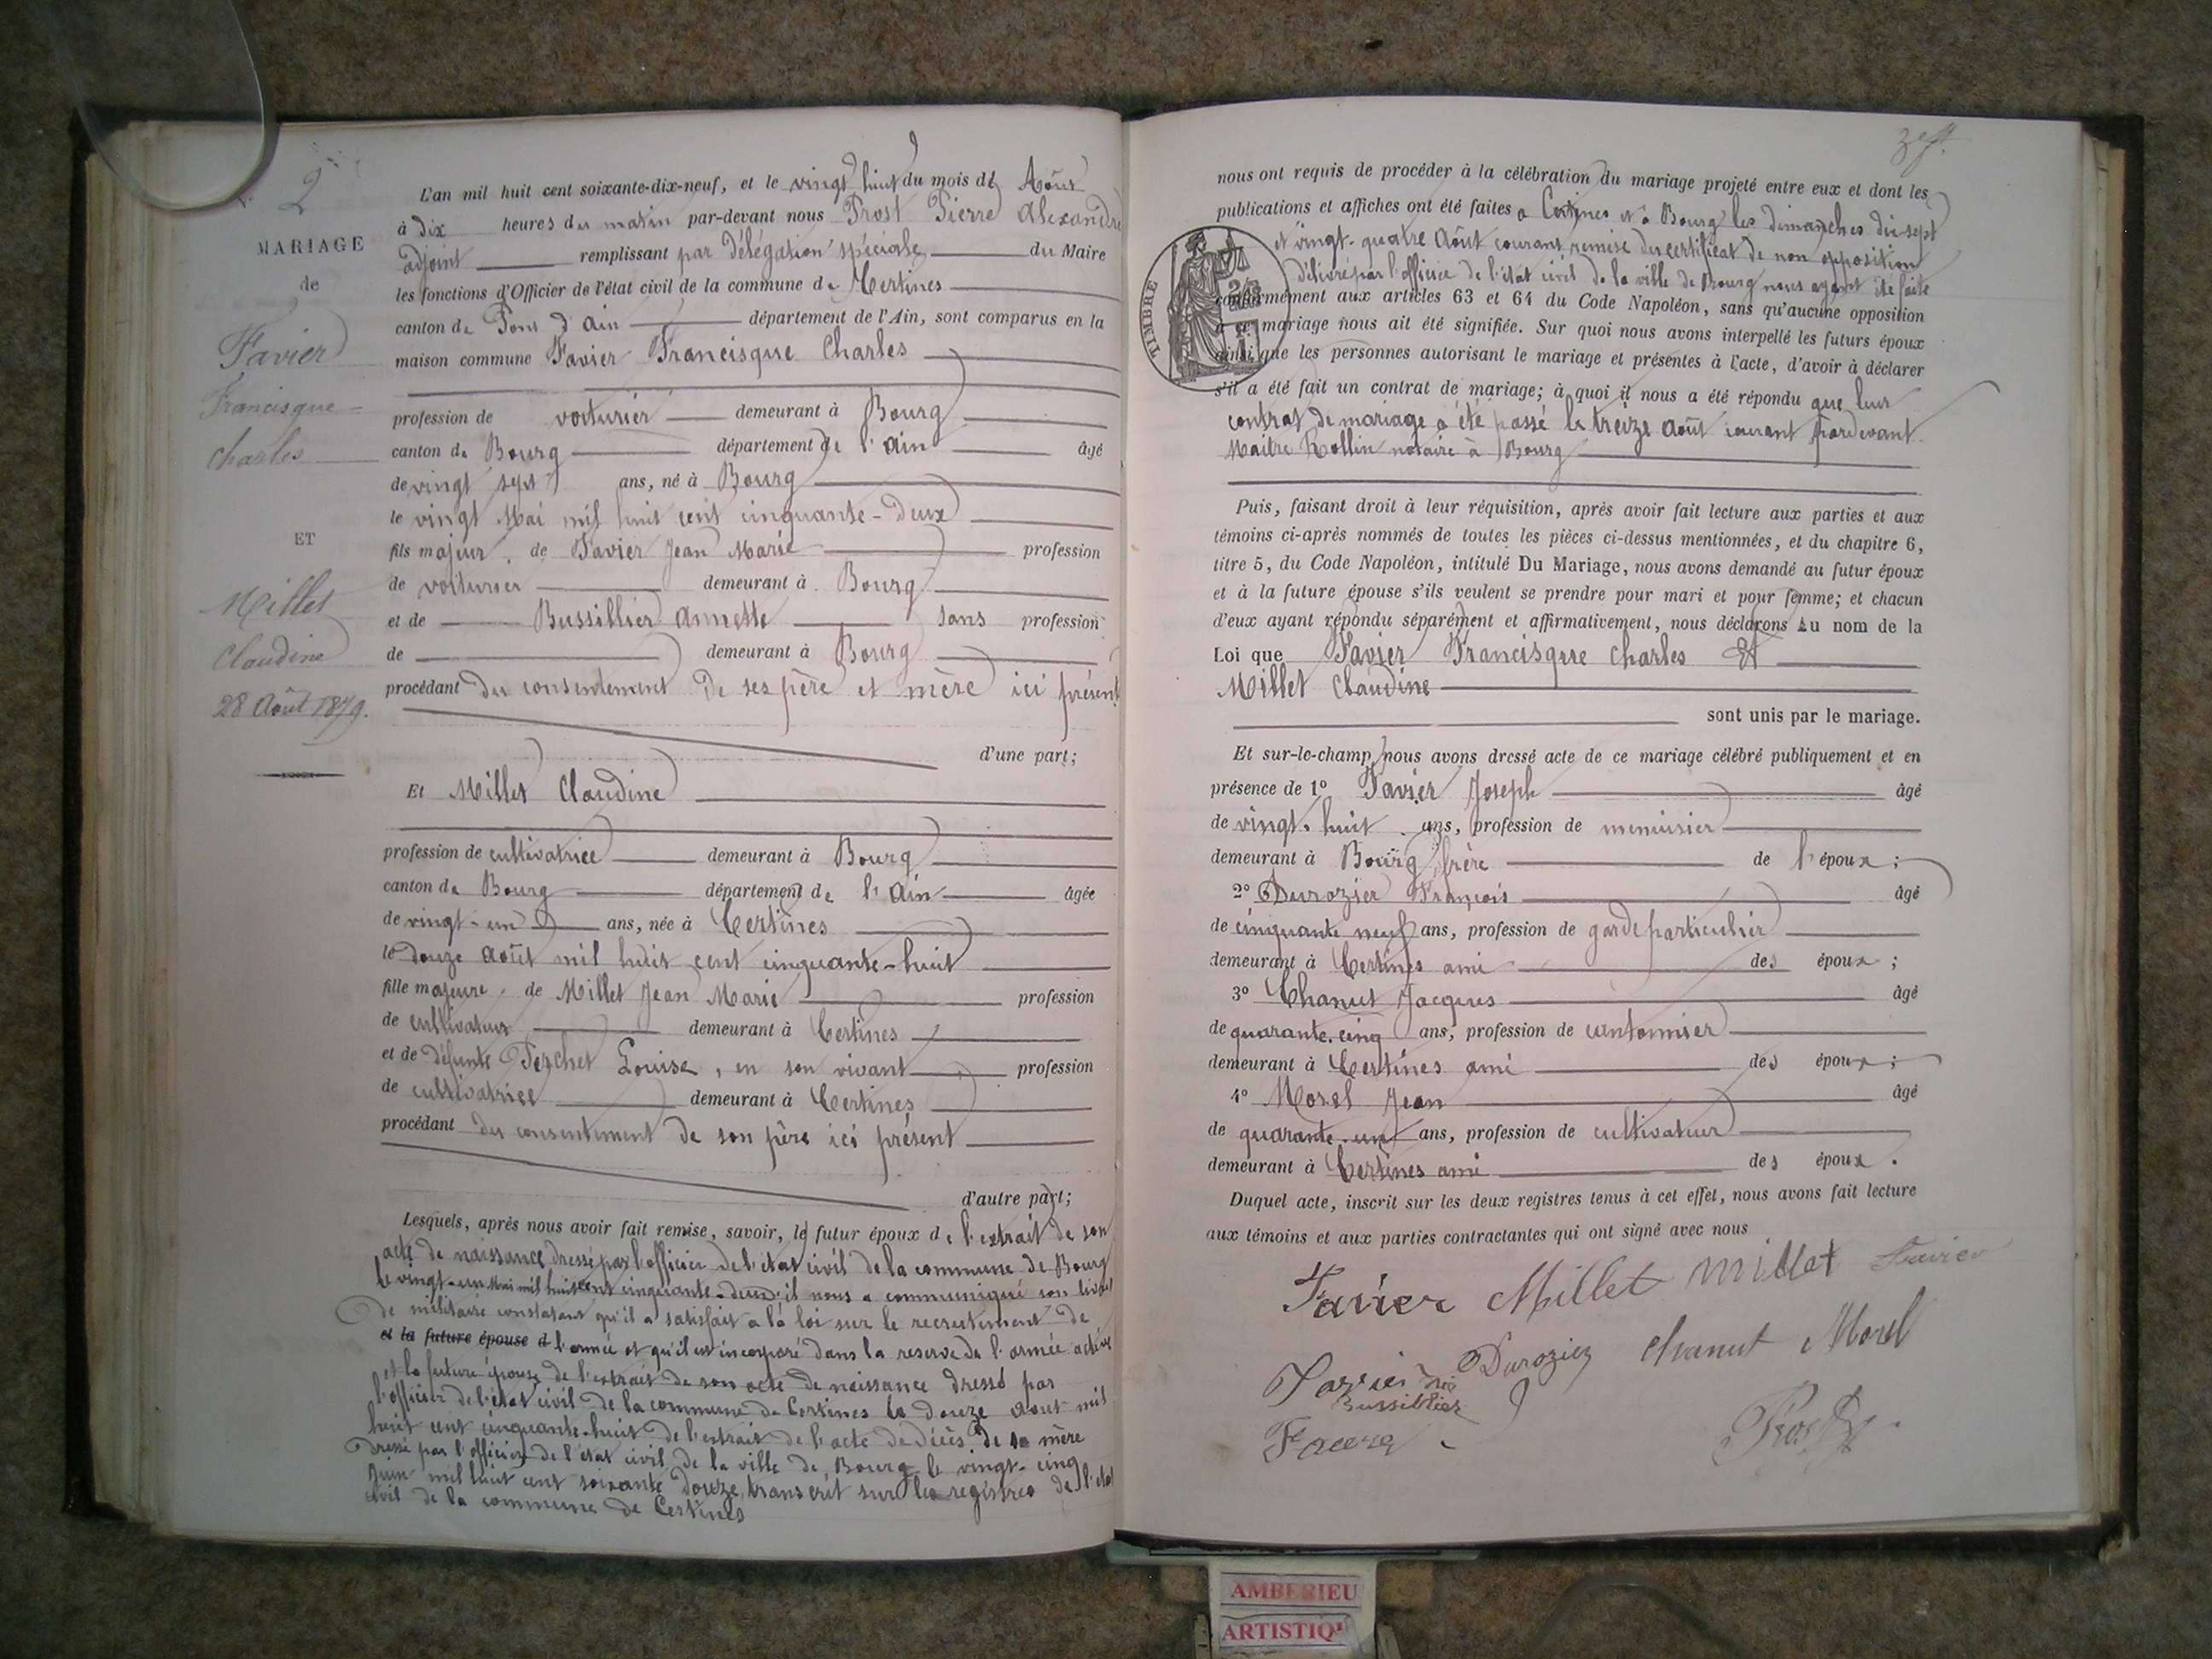 2
MARIAGE
de
Favier
Francisque
Charles
ET
Millet
Claudine
28 Août 1879.
L'an mil huit cent soixante-dix-neuf, et le vingt huit du mois de Août
à dix heures du matin par-devant nous Prost Pierre Alexandre
adjoint remplissant par délégation spéciale du Maire
les fonctions d'Officier de l'état civil de la commune de Certines
canton de Pont d'Ain département de l'Ain, sont comparus en la
maison commune Favier Francisque Charles
profession de voiturier demeurant à Bourg
canton de Bourg département de l'Ain âgé
de vingt sept ans, né à Bourg
le vingt Mai mil huit cent cinquante-deux
fils majeur, de Favier Jean Marie profession
de voiturier demeurant à Bourg
et de Bussillier Annette sans profession
de demeurant à Bourg
procédant du consentement de ses père et mère ici présent
d'une part;
Et Millet Claudine
profession de cultivatrice demeurant à Bourg
canton de Bourg département de l'Ain âgée
de vingt-un ans, née à Certines
le douze août mil huit cent cinquante-huit
fille majeure, de Millet Jean Marie profession
de cultivateur demeurant à Certines
et de défunte Perchet Louise, en son vivant profession
de cultivatrice demeurant à Certines
procédant du consentement de son père ici présent
d'autre part;
Lesquels, après nous avoir fait remise, savoir, le futur époux de l'extrait de son
acte de naissance dressé par l'officier de l'état civil de la commune de Bourg
le vingt-un Mai mil huit cent cinquante-deux; il nous a communiqué son livret
militaire constatant qu'il a satisfait à la loi sur le recrutement de
et la future épouse d l'armée et qu'il est incorporé dans la reserve de l'armée active
et la future épouse de l'extrait de son acte de naissance dressé par
l'officier de l'état civil de la commune de Certines le douze aout mil
huit cent cinquante-huit de l'extrait de l'acte de décès de sa mère
dressé par l'officier de l'état civil de la ville de Bourg le vingt-cinq
Juin mil huit cent soixante douze, transcrit sur les registres de l'état
civil de la commune de Certines
nous ont requis de procéder à la célébration du mariage projeté entre eux et dont les
publications et affiches ont été faites à Certines et à Bourg les dimanches dix-sept
et vingt-quatre Août courant, remise du certificat de non opposition
délivré par l'officier de l'état civil de la ville de Bourg nous ayant été faite
conformément aux articles 63 et 64 du Code Napoléon, sans qu'aucune opposition
à ce mariage nous ait été signifiée. Sur quoi nous avons interpellé les futurs époux
ainsi que les personnes autorisant le mariage et présentes à l'acte, d'avoir à déclarer
s'il a été fait un contrat de mariage; à quoi il nous a été répondu que leur
contrat de mariage a été passé le treize août courant pardevant
Maitre Rollin notaire à Bourg
TIMBRE
Puis, faisant droit à leur réquisition, après avoir fait lecture aux parties et aux
témoins ci-après nommés de toutes les pièces ci-dessus mentionnées, et du chapitre 6,
titre 5, du Code Napoléon, intitulé Du Mariage, nous avons demandé au futur époux
et à la future épouse s'ils veulent se prendre pour mari et pour femme; et chacun
d'eux ayant répondu séparément et affirmativement, nous déclarons Au nom de la
Loi que Favier Francisque Charles Et
Millet Claudine
sont unis par le mariage.
Et sur-le-champ nous avons dressé acte de ce mariage célébré publiquement et en
présence de 1º Favier Joseph âgé
de vingt-huit ans, profession de menuisier
demeurant à Bourg, frère de l'époux;
2º Durozier François âgé
de cinquante neuf ans, profession de garde particulier
demeurant à Certines ami des époux;
3º Chanut Jacques âgé
de quarante-cinq ans, profession de cantonnier
demeurant à Certines ami des époux;
4º Morel Jean âgé
de quarante-un ans, profession de cultivateur
demeurant à Certines ami des époux.
Duquel acte, inscrit sur les deux registres tenus à cet effet, nous avons fait lecture
aux témoins et aux parties contractantes qui ont signé avec nous
Favier Millet Millet Favier
Durozier Chanut Morel
Favier née
Bussillier
Prost
AMBERIEU
ARTISTIQ